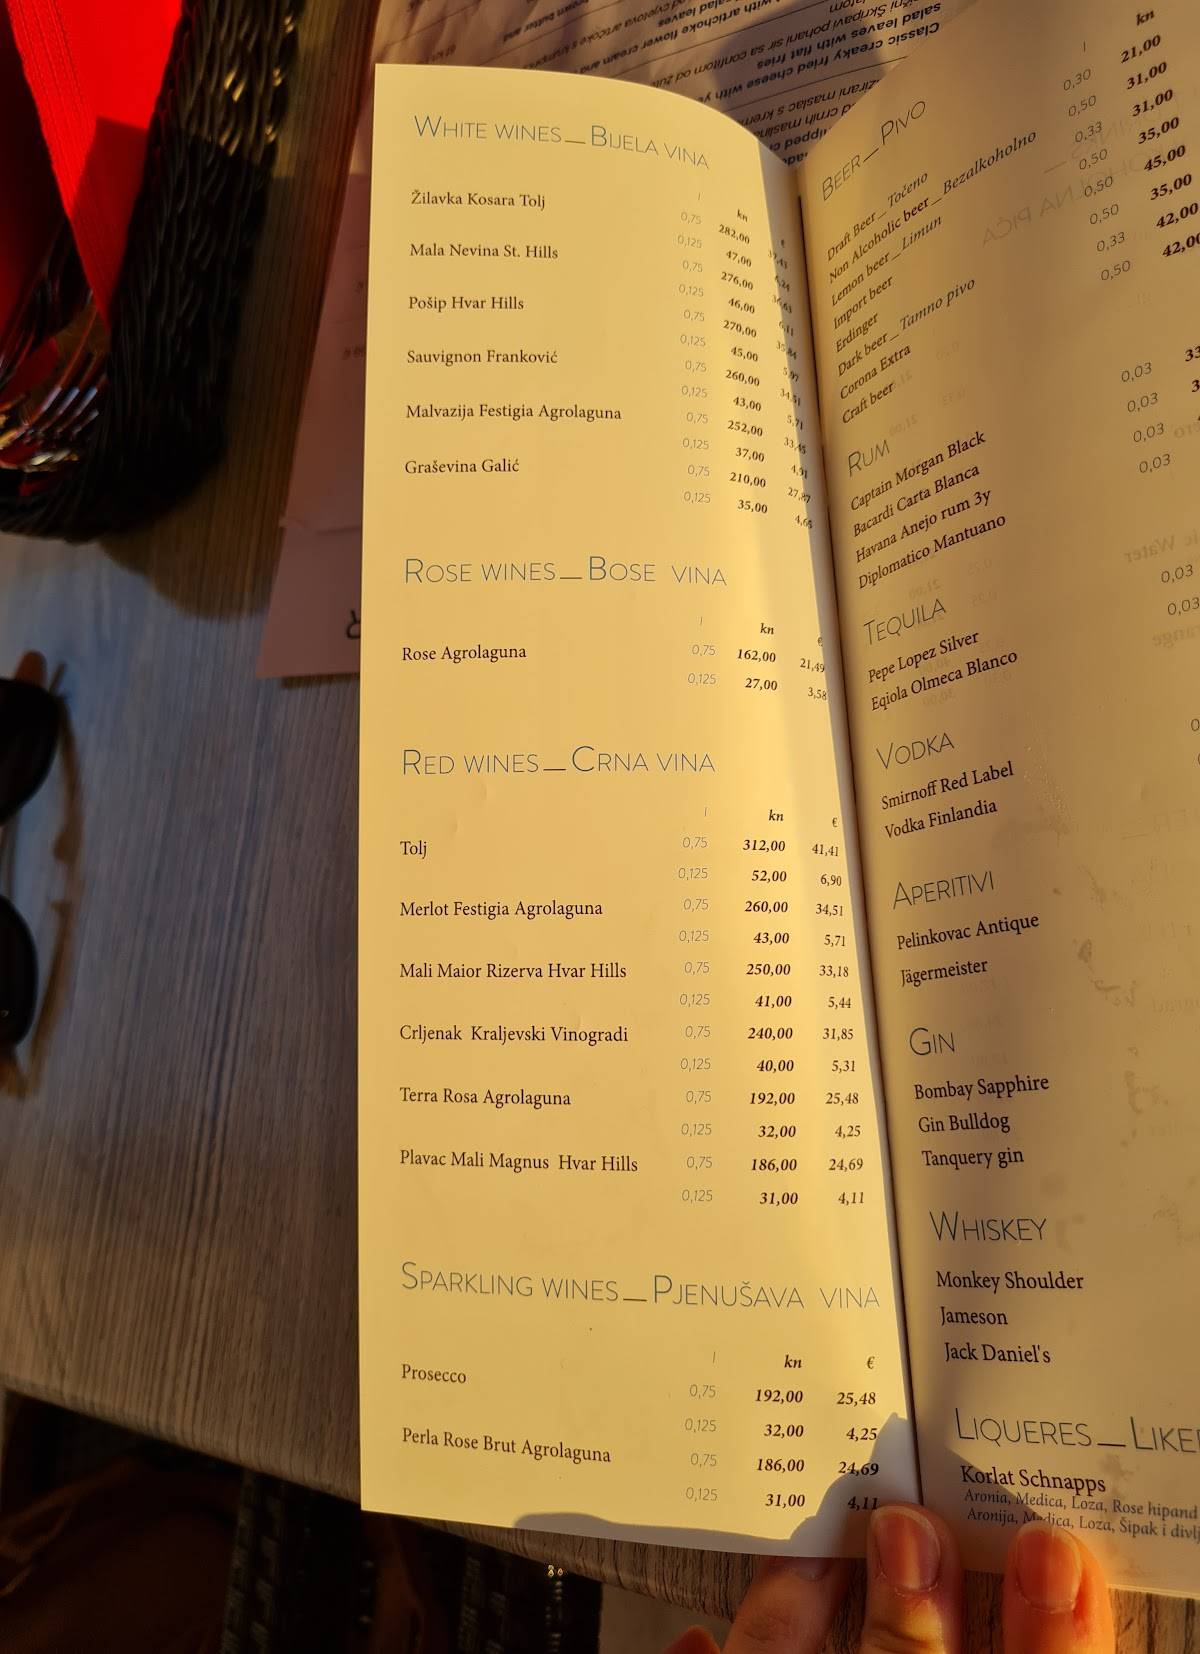 WHITE WINES_BIJELA VINA
l kn €
Žilavka Kosara Tolj 0,75 282,00 37,43
0,125 47,00 6,24
Mala Nevina St. Hills 0,75 276,00 36,63
0,125 46,00 6,11
Pošip Hvar Hills 0,75 270,00 35,84
0,125 45,00 5,97
Sauvignon Franković 0,75 260,00 34,51
0,125 43,00 5,71
Malvazija Festigia Agrolaguna 0,75 252,00 33,45
0,125 37,00 4,91
Graševina Galić 0,75 210,00 27,87
0,125 35,00 4,65
ROSE WINES_BOSE VINA
l kn €
Rose Agrolaguna 0,75 162,00 21,49
0,125 27,00 3,58
RED WINES_CRNA VINA
l kn €
Tolj 0,75 312,00 41,41
0,125 52,00 6,90
Merlot Festigia Agrolaguna 0,75 260,00 34,51
0,125 43,00 5,71
Mali Maior Rizerva Hvar Hills 0,75 250,00 33,18
0,125 41,00 5,44
Crljenak Kraljevski Vinogradi 0,75 240,00 31,85
0,125 40,00 5,31
Terra Rosa Agrolaguna 0,75 192,00 25,48
0,125 32,00 4,25
Plavac Mali Magnus Hvar Hills 0,75 186,00 24,69
0,125 31,00 4,11
SPARKLING WINES_PJENUŠAVA VINA
l kn €
Prosecco 0,75 192,00 25,48
0,125 32,00 4,25
Perla Rose Brut Agrolaguna 0,75 186,00 24,69
0,125 31,00 4,11
BEER_PIVO
l kn
Draft Beer_Točeno 0,30 21,00
Non Alcoholic beer_Bezalkoholno 0,50 31,00
Lemon beer_Limun 0,33 31,00
Import beer 0,50 35,00
Erdinger 0,50 45,00
Dark beer_Tamno pivo 0,50 35,00
Corona Extra 0,33 42,00
Craft beer 0,50 42,00
RUM
Captain Morgan Black 0,03
Bacardi Carta Blanca 0,03
Havana Anejo rum 3y 0,03
Diplomatico Mantuano 0,03
TEQUILA
Pepe Lopez Silver 0,03
Eqiola Olmeca Blanco 0,03
VODKA
Smirnoff Red Label
Vodka Finlandia
APERITIVI
Pelinkovac Antique
Jägermeister
GIN
Bombay Sapphire
Gin Bulldog
Tanquery gin
WHISKEY
Monkey Shoulder
Jameson
Jack Daniel's
LIQUERES_LIKE
Korlat Schnapps
Aronia, Medica, Loza, Rose hipand
Aronija, Medica, Loza, Šipak i divlj